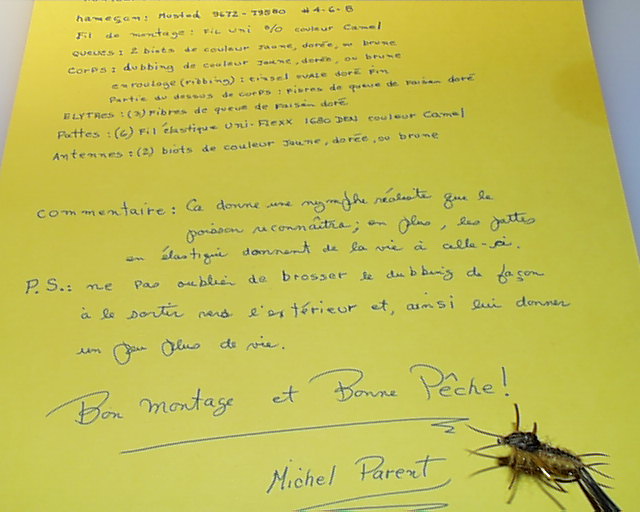 hameçon: Mustad 9672-79580 #4-6-8
Fil de montage: Fil Uni 8/0 couleur Camel
Queues: 2 biots de couleur jaune, dorée, ou brune
Corps: dubbing de couleur jaune, dorée, ou brune
enroulage (ribbing): tinsel ovale doré fin
Partie du dessus de corps: fibres de queue de Faisan doré
ELYTRES: (3) Fibres de queue de Faisan doré
Pattes: (6) Fil élastique Uni-Flexx 1680 DEN couleur Camel
Antennes: (2) biots de couleur Jaune, dorée, ou brune
Commentaire: Ca donne une nymphe réaliste que le
poisson reconnaîtra; en plus, les pattes
en élastique donnent de la vie à celle-ci.
P.S.: ne pas oublier de brosser le dubbing de façon
à le sortir vers l'extérieur et, ainsi lui donner
un peu plus de vie.
Bon montage et Bonne Pêche!
Michel Parent